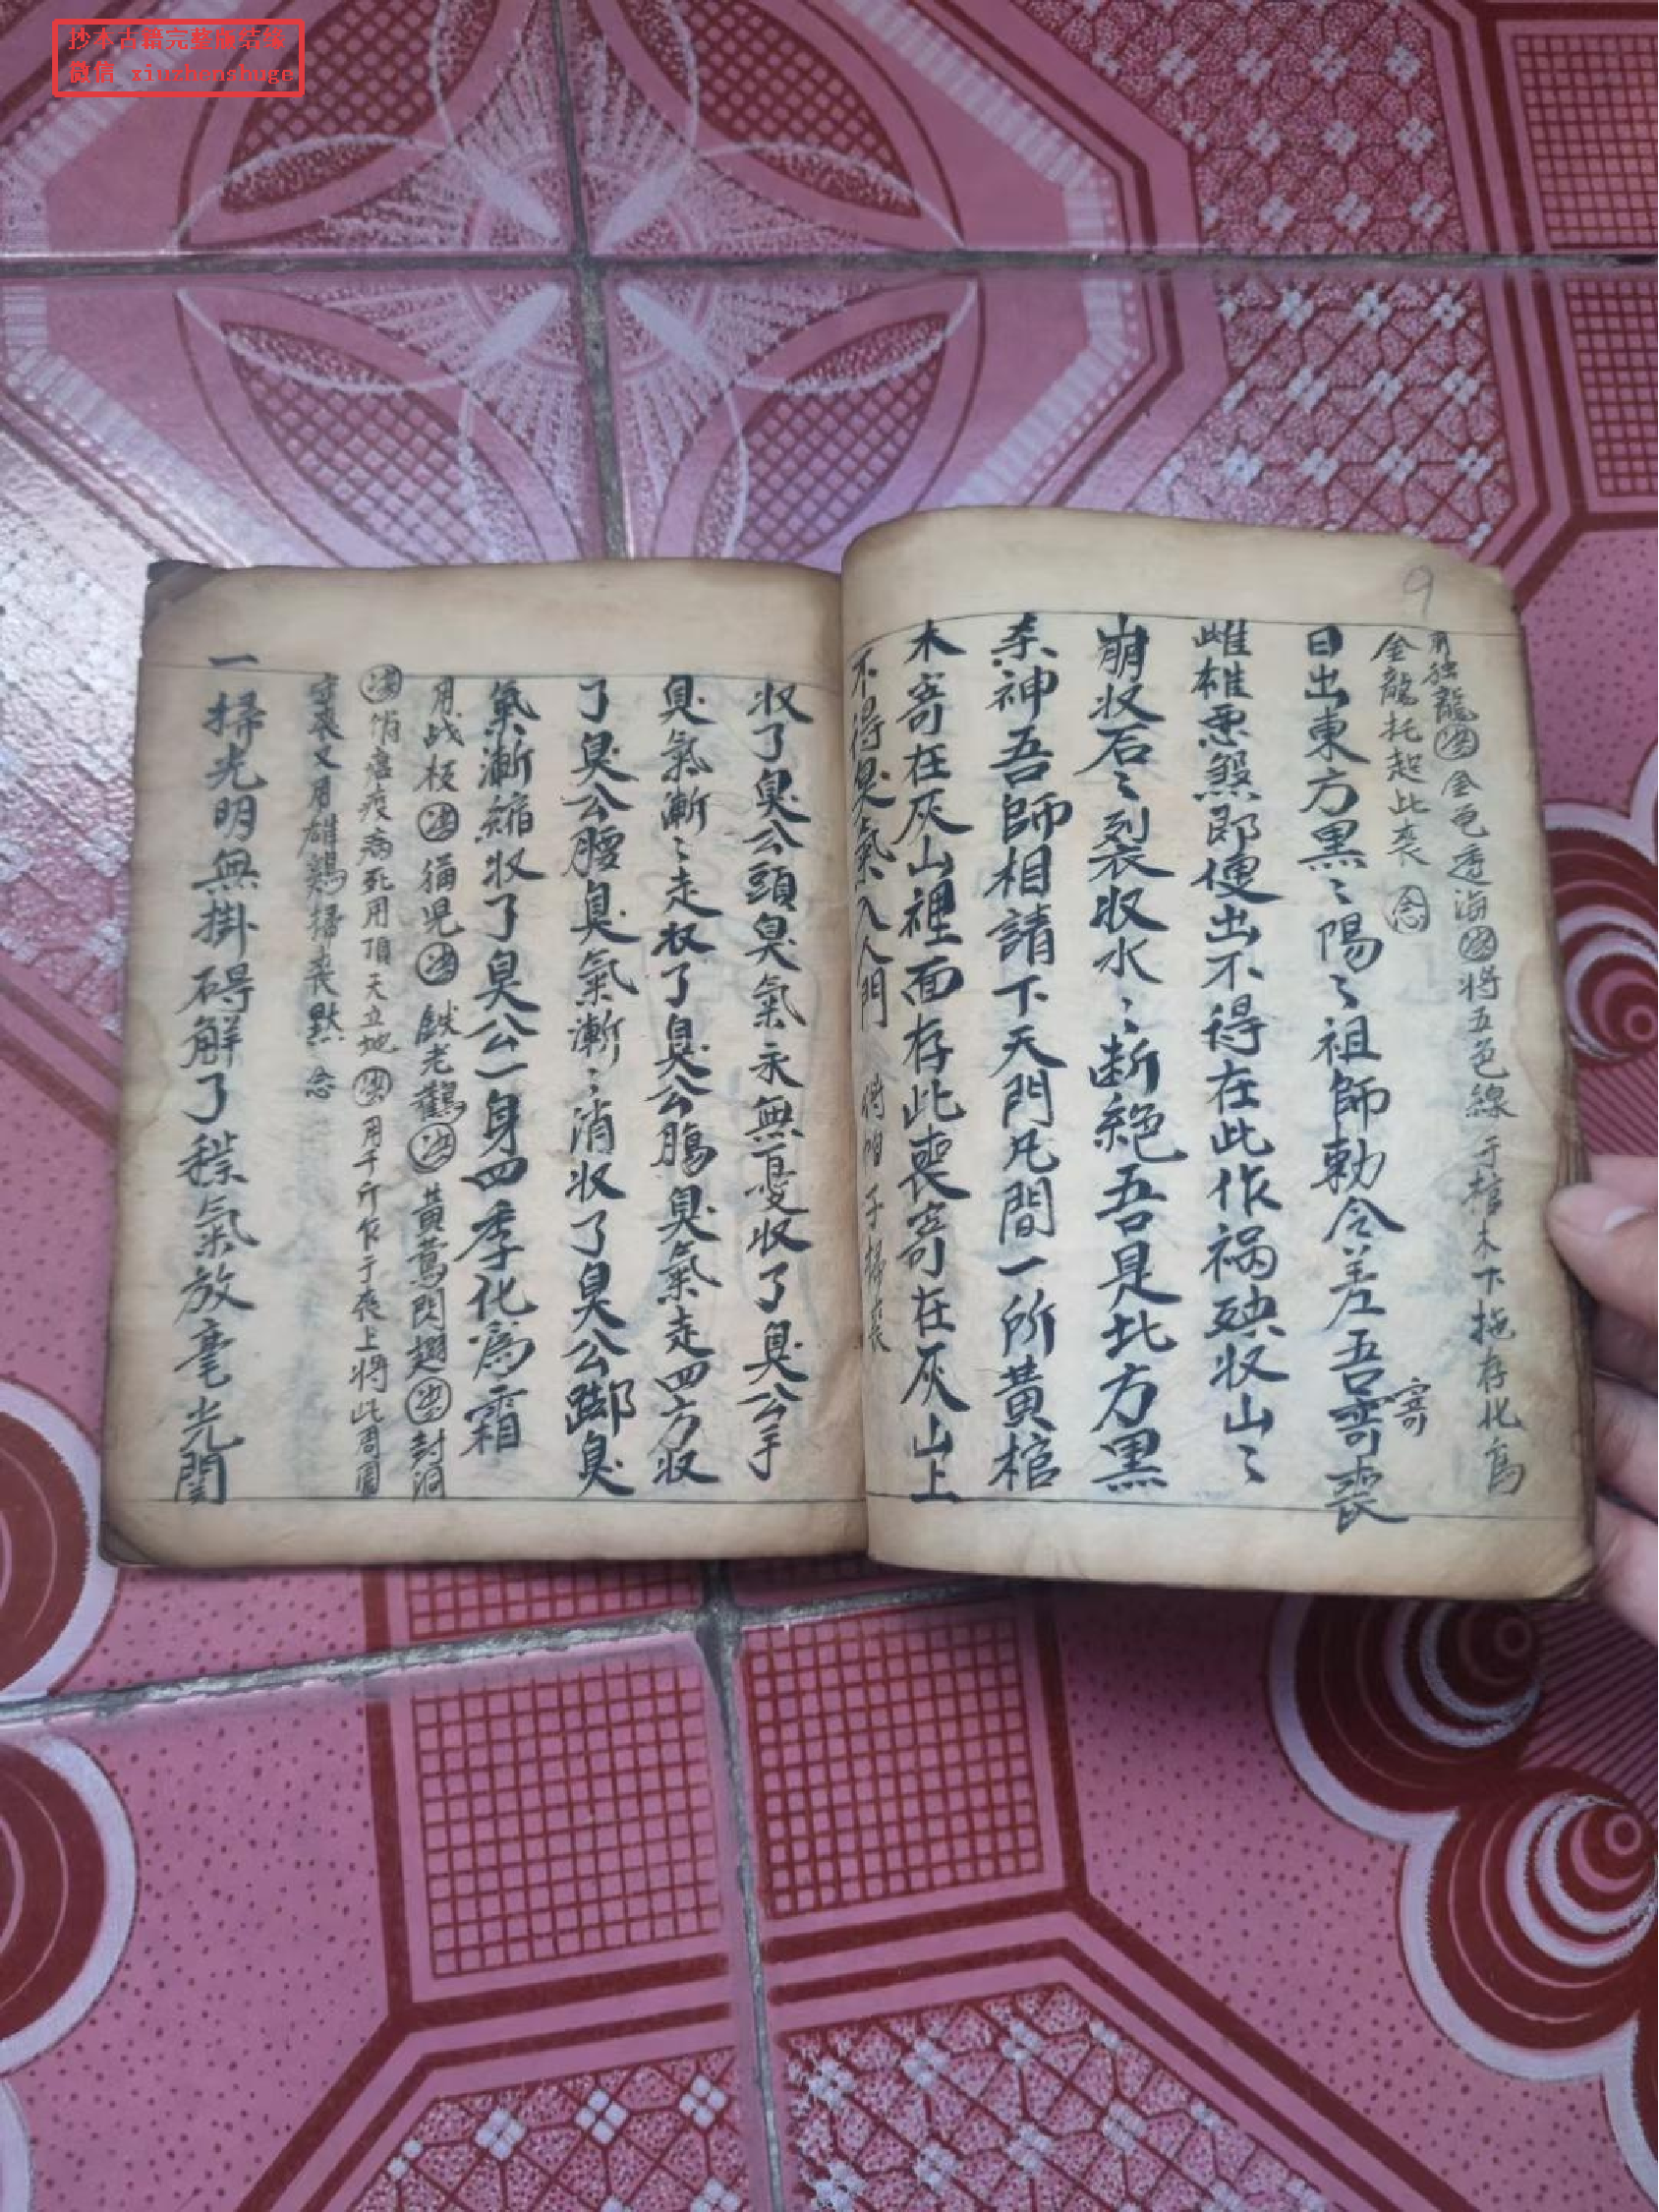 抄本古籍完整版结缘
微信 xiuzhenshuge
9
用独龍㊟金色透海㊟将五色線于棺木下拖存化為
金龍托起此喪 念
日出東方黑〻陽〻祖師勅令差吾寄喪
寄
雌雄悪煞郎便出不得在此作祸殃收山〻
崩收石〻裂收水〻断絶吾是北方黑
杀神吾師相請下天門凡間一所黄棺
木寄在灰山裡面存此喪寄在灰山上
不得臭氣入人門
收了臭公頭臭氣永無憂收了臭公手
臭氣漸〻走收了臭公腸臭氣走四方收
了臭公腰臭氣漸〻消收了臭公脚臭
氣漸縮收了臭公一身四季化為霜
用战枝 猫児 鉄老鸛 黄鶯閃翅 封洞
疾病死用頂天立地 用千斤 于喪上将此周圍
喪又用雄鷄掃喪默念
一掃光明無掛碍解了穢氣放毫光